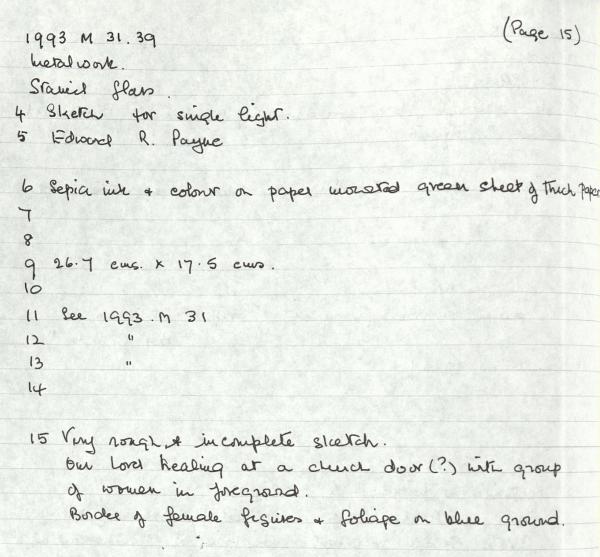 (Page 15)
1993 M 31.39
Metalwork.
Stained glass.
4 Sketch for single light.
5 Edward R. Payne
6 Sepia ink & colour on paper mounted green sheet of thick paper
7
8
9 26.7 cms. x 17.5 cms.
10
11 See 1993.M 31
12 "
13 "
14
15 Very rough & incomplete sketch.
Our Lord healing at a church door (?) with group
of women in foreground.
Border of female figures & foliage on blue ground.